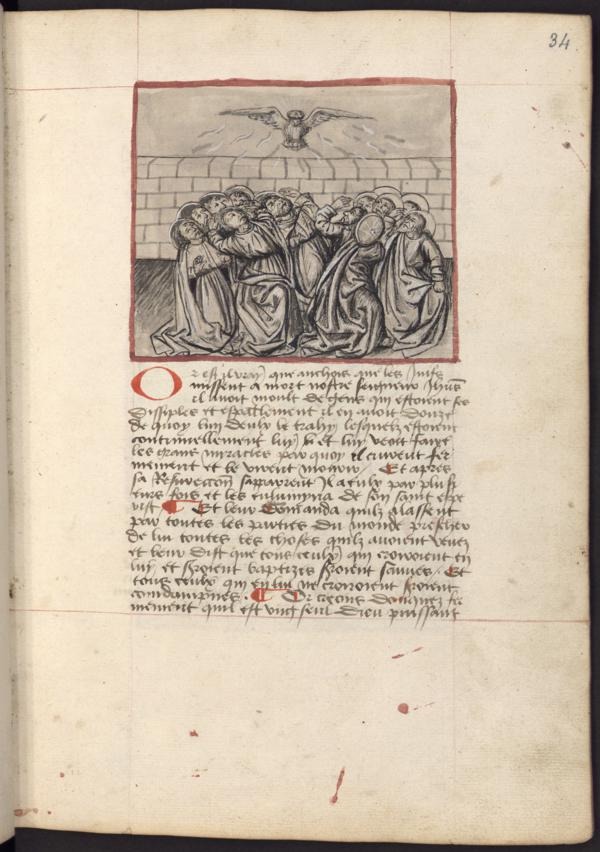 34
Or est il vray que anchois que les Juifz
missent a mort nostre seigneur Jhus
il avoit moult de gens qui estoient ses
dissiples et espaciiement il en avoit douze
de quoy lun deulx le trahy lesquelz estoient
continuellement luy et luy veoit faire
les grans miracles par quoy il crurent fer
mement et le virent morir Et apres
sa Resureccon sapparrent Il a eulx par plus
eurs fois et les enlumyna de son saint espe
rist Et leur Comanda quilz alassent
par toutes les parties du monde prescher
de luy toutes les choses quilz avoient veues
et leur dist que tous ceulx qui crovoient en
luy et seroient baptizes seroient sauves Et
tous ceulx qui en lui ne croiroient seroient
condampnes Or creons doncques fer
mement quil est ving seul dieu puissant